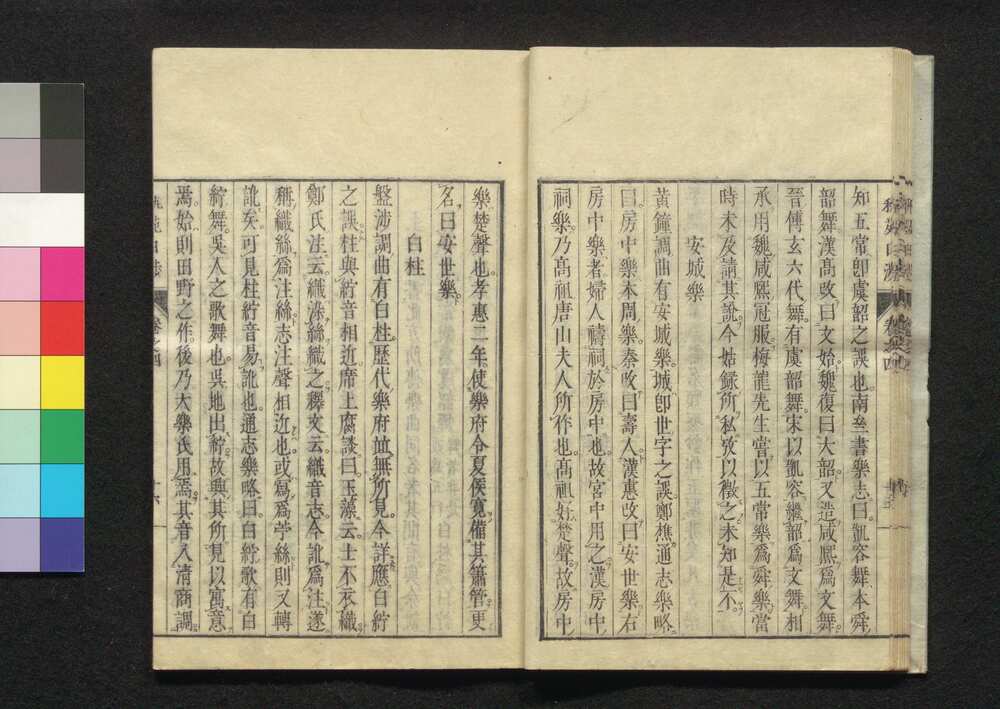 知五常卽虞韶之誤也南叅書樂志曰凱容舞本舜
韶舞漢高改曰文始魏復曰大韶又造咸熈爲文舞
晉傅玄六代舞有虞韶舞宋以凱容繼韶爲文舞相
承用魏咸熈冠服梅龍先生嘗以五常樂爲舜樂當
時未及請其說今姑錄所私攷以徵之未知是不
安城樂
黄鐘調曲有安城樂城卽世字之誤鄭樵通志樂略
曰房中樂本周樂秦改曰壽人漢惠改曰安世樂右
房中樂者婦人禱祠於房中也故宮中用之漢房中
祠樂乃高祖唐山夫人所作也高祖好楚聲故房中
樂楚聲也孝惠二年使樂府令夏侯寬備其簫管更
名曰安世樂
白柱
盤渉調曲有白柱歷代樂府並無所見今詳應白紵
之誤柱與紵音相近席上腐談曰玉藻云士不衣織
鄭氏注云織染絲織之釋文云織音志今訛爲注遂
稱織絲爲注絲志注聲相近也或寫爲苧絲則又轉
訛矣可見柱紵音易訛也通志樂略曰白紵歌有白
紵舞吳人之歌舞也吳地出紵故興其所見以寓意
焉始則田野之作後乃大樂氏用焉其音入淸商調
卷之四